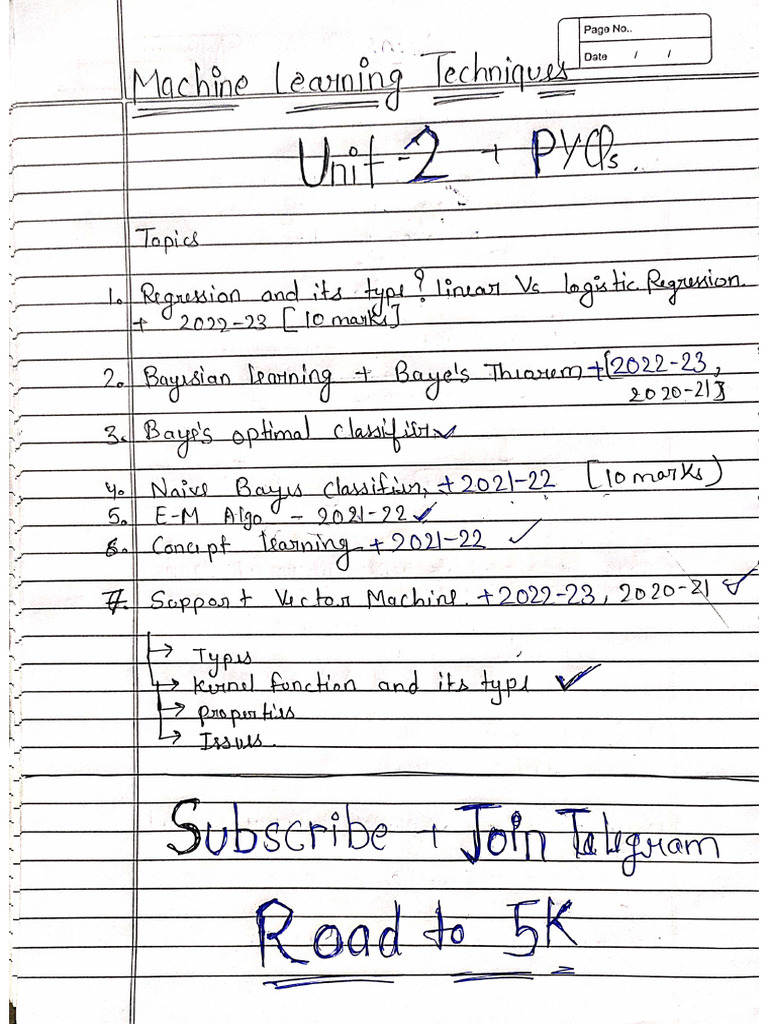 Page No..
Date / /
Machine Learning Techniques
Unit-2 + PYQs.
Topics
1. Regression and its type? linear Vs logistic Regression.
+ 2022-23 [10 marks]
2. Bayesian learning + Baye's Theorem + [2022-23,
2020-21]
3. Baye's optimal classifier
4. Naive Bayes classifier, + 2021-22 [10 marks)
5. E-M Algo - 2021-22
6. Concept learning + 2021-22
7. Support Vector Machine. + 2022-23, 2020-21
Types
Kernel function and its type
properties
Issues.
Subscribe + Join Telegram
Road to 5K